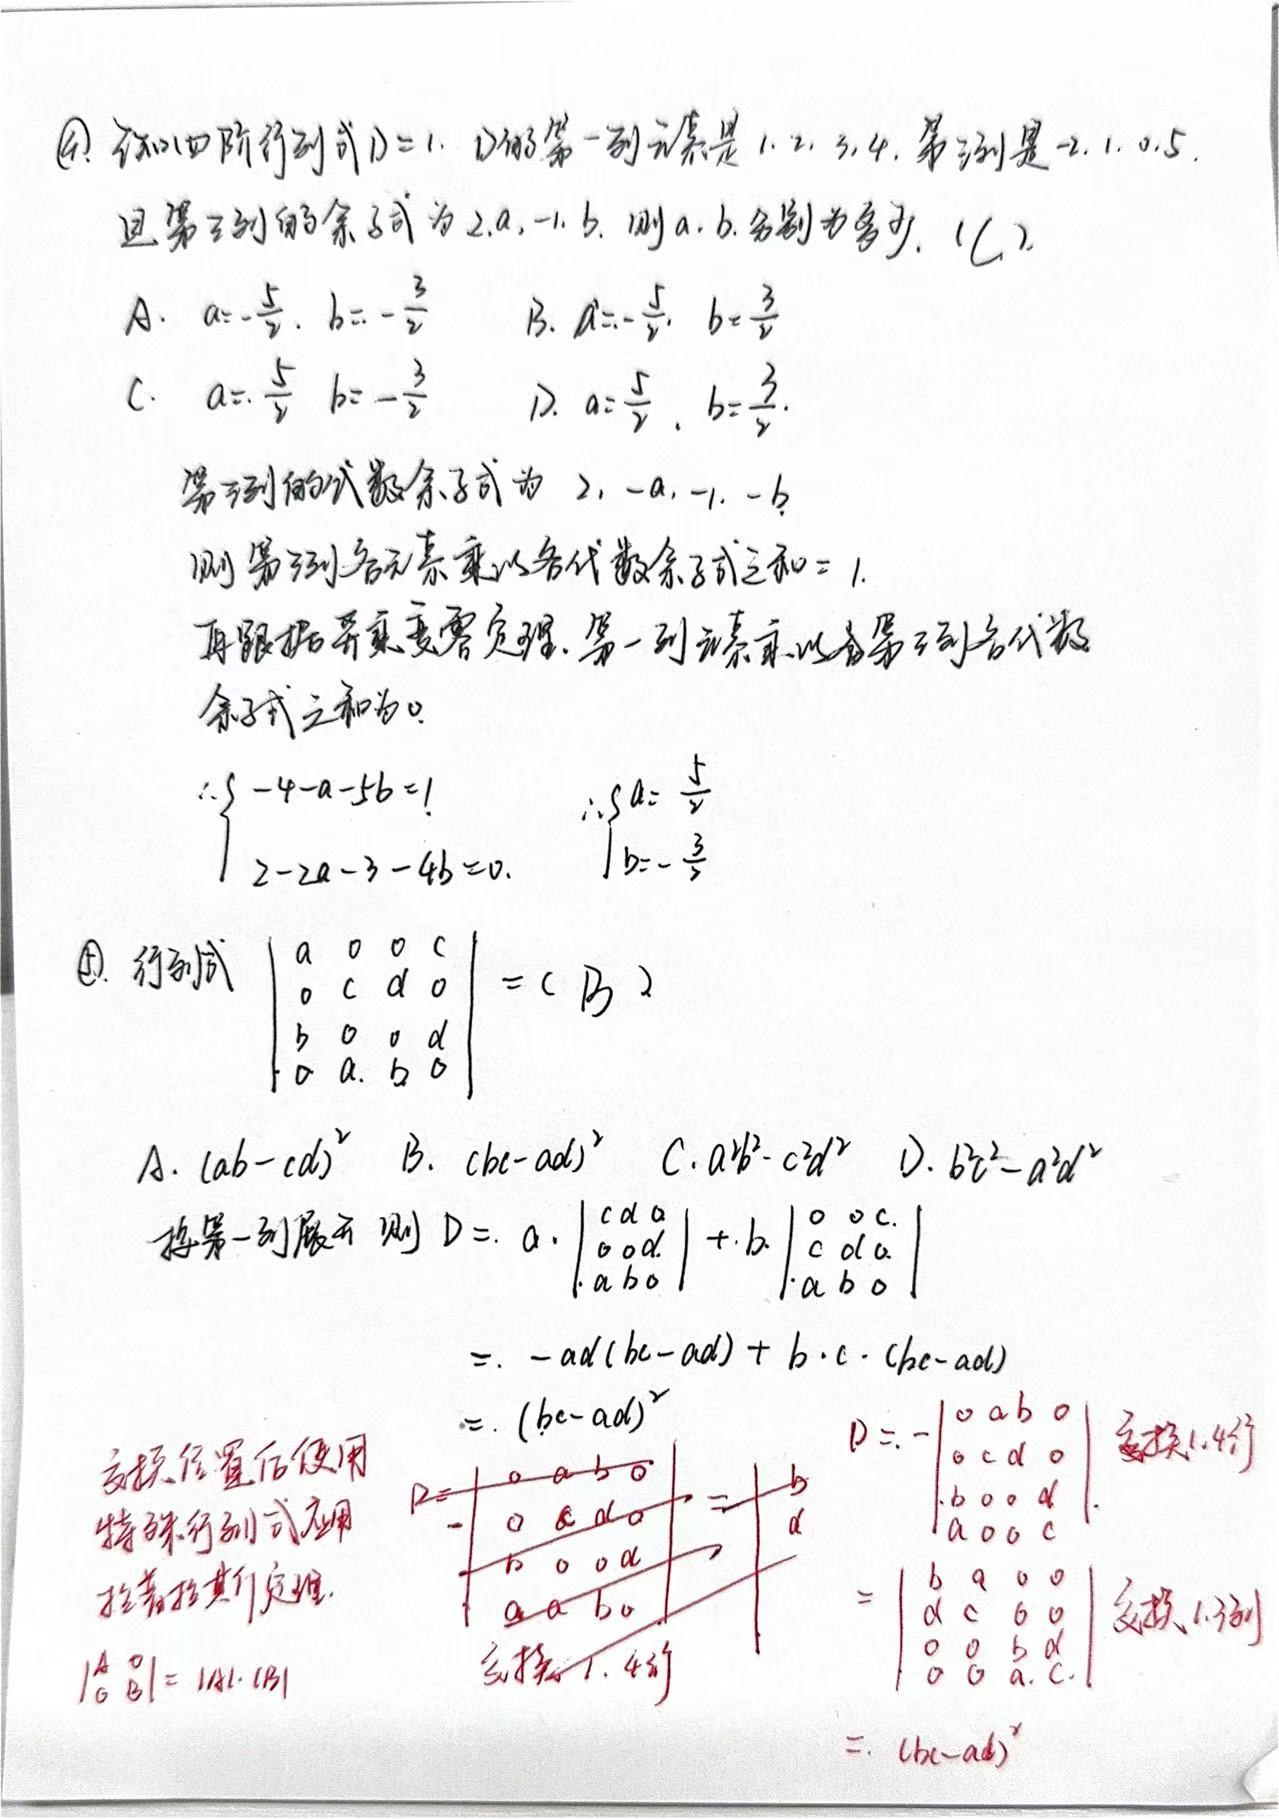 ④. 已知四阶行列式D=1. D的第一列元素是1.2.3.4.第三列是-2.1.0.5.
且第三列的余子式为2.a.-1.b.则a.b.分别为多少.(C).
A. a=-5/2. b=-3/2 B. a=-5/2. b=3/2
C. a=5/2 b=-3/2 D. a=5/2. b=3/2.
第三列的代数余子式为 2. -a. -1. -b
则第三列各元素乘以各代数余子式之和=1.
再跟据异乘变零定理.第一列元素乘以第三列各代数
余子式之和为0.
∴{ -4-a-5b=1 ∴{ a=5/2
2-2a-3-4b=0. b=-3/2
⑤. 行列式 | a 0 0 c | =(B)
0 c d 0
b 0 0 d
0 a b 0
A. (ab-cd)² B. (bc-ad)² C. a²b²-c²d² D. b²c²-a²d²
按第一列展开 则 D= a· | c d 0 | + b· | 0 0 c |
0 0 d c d 0
a b 0 a b 0
= -ad(bc-ad)+b·c·(bc-ad)
= (bc-ad)²
交换位置后使用
特殊行列式应用
拉普拉其斤定理.
|A 0
0 B| = |A|·|B|
D= - | 0 a b 0
0 c d 0
b 0 0 d
a a b 0 | = | b
d
交换 1.4行
D= - | 0 a b 0 | 交换1.4行
0 c d 0
b 0 0 d
a 0 0 c
= | b a 0 0 |
d c 0 0 交换1.3列
0 0 b d
0 0 a c
= (bc-ad)²